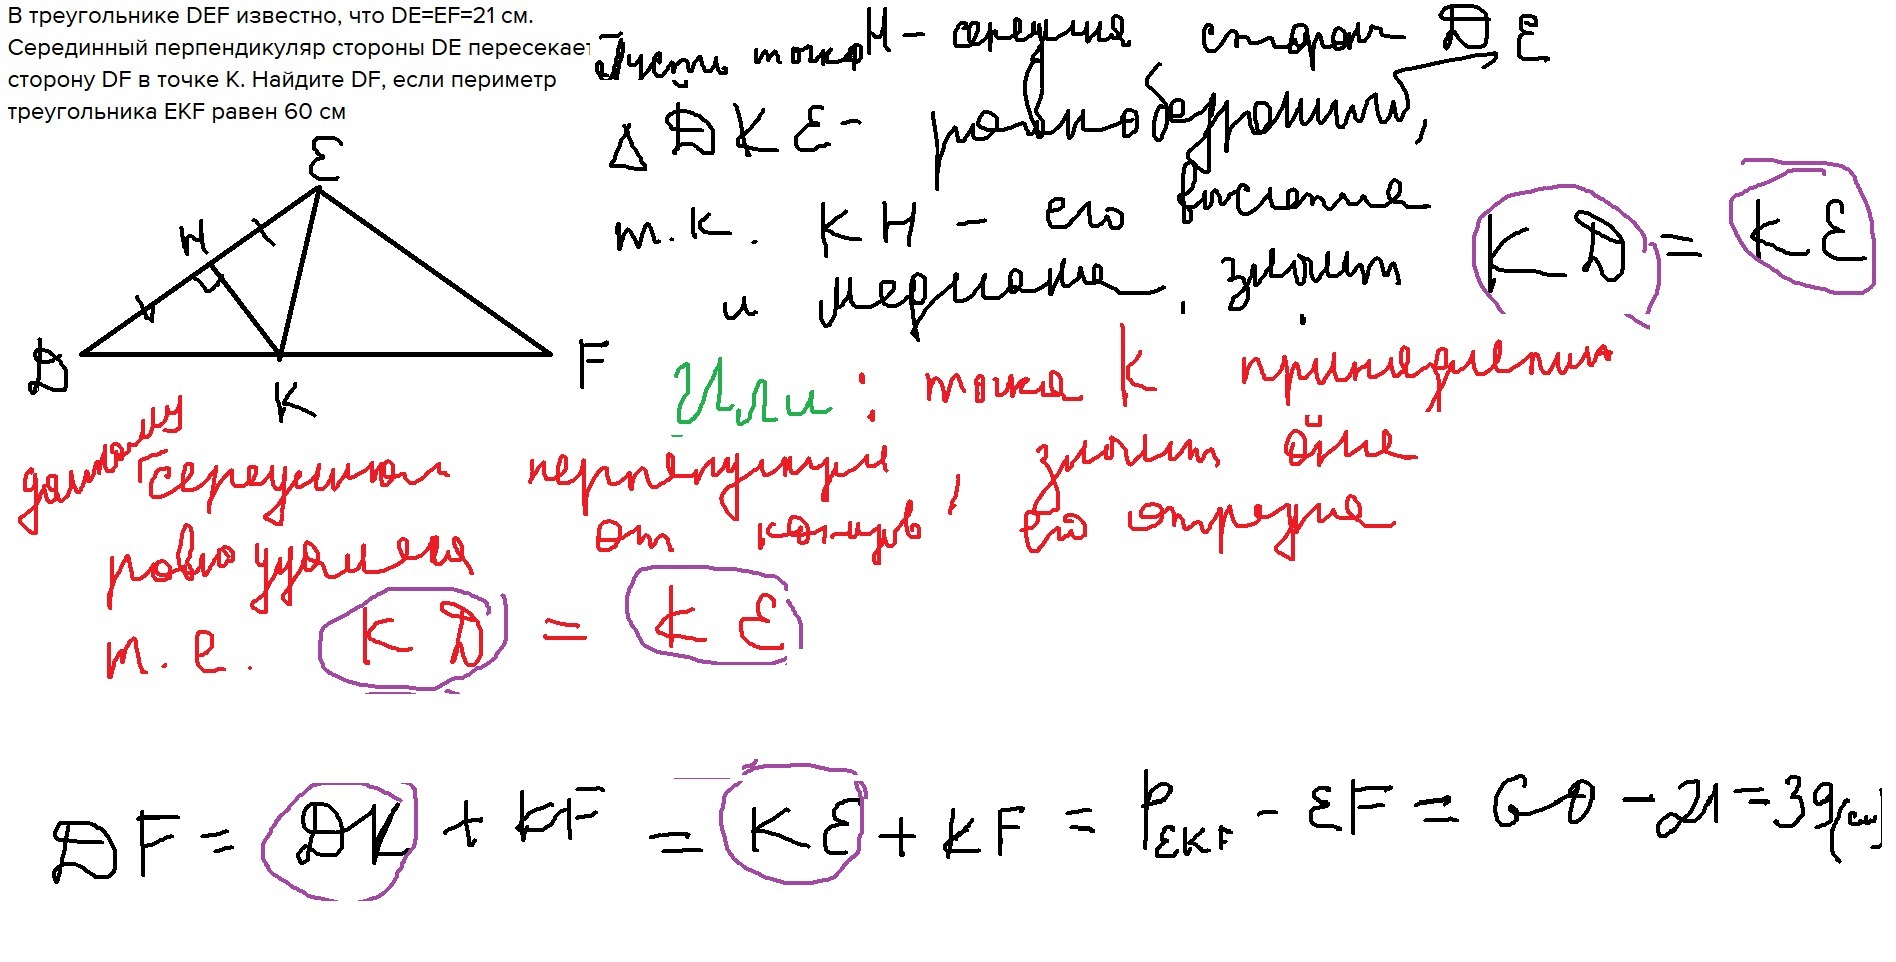 В треугольнике DEF известно, что DE=EF=21 см.
Серединный перпендикуляр стороны DE пересекает
сторону DF в точке K. Найдите DF, если периметр
треугольника EKF равен 60 см
Пусть точка H - середина стороны DE
Δ DKE - равнобедренный,
т.к. KH - его высота
и медиана, значит KD = KE
E
H
D
K
F
Или: точка K принадлежит
данному серединному перпендикуляру, значит она
равноудалена от концов его отрезка
т.е. KD = KE
DF = DK + KF = KE + KF = P EKF - EF = 60 - 21 = 39 (см)